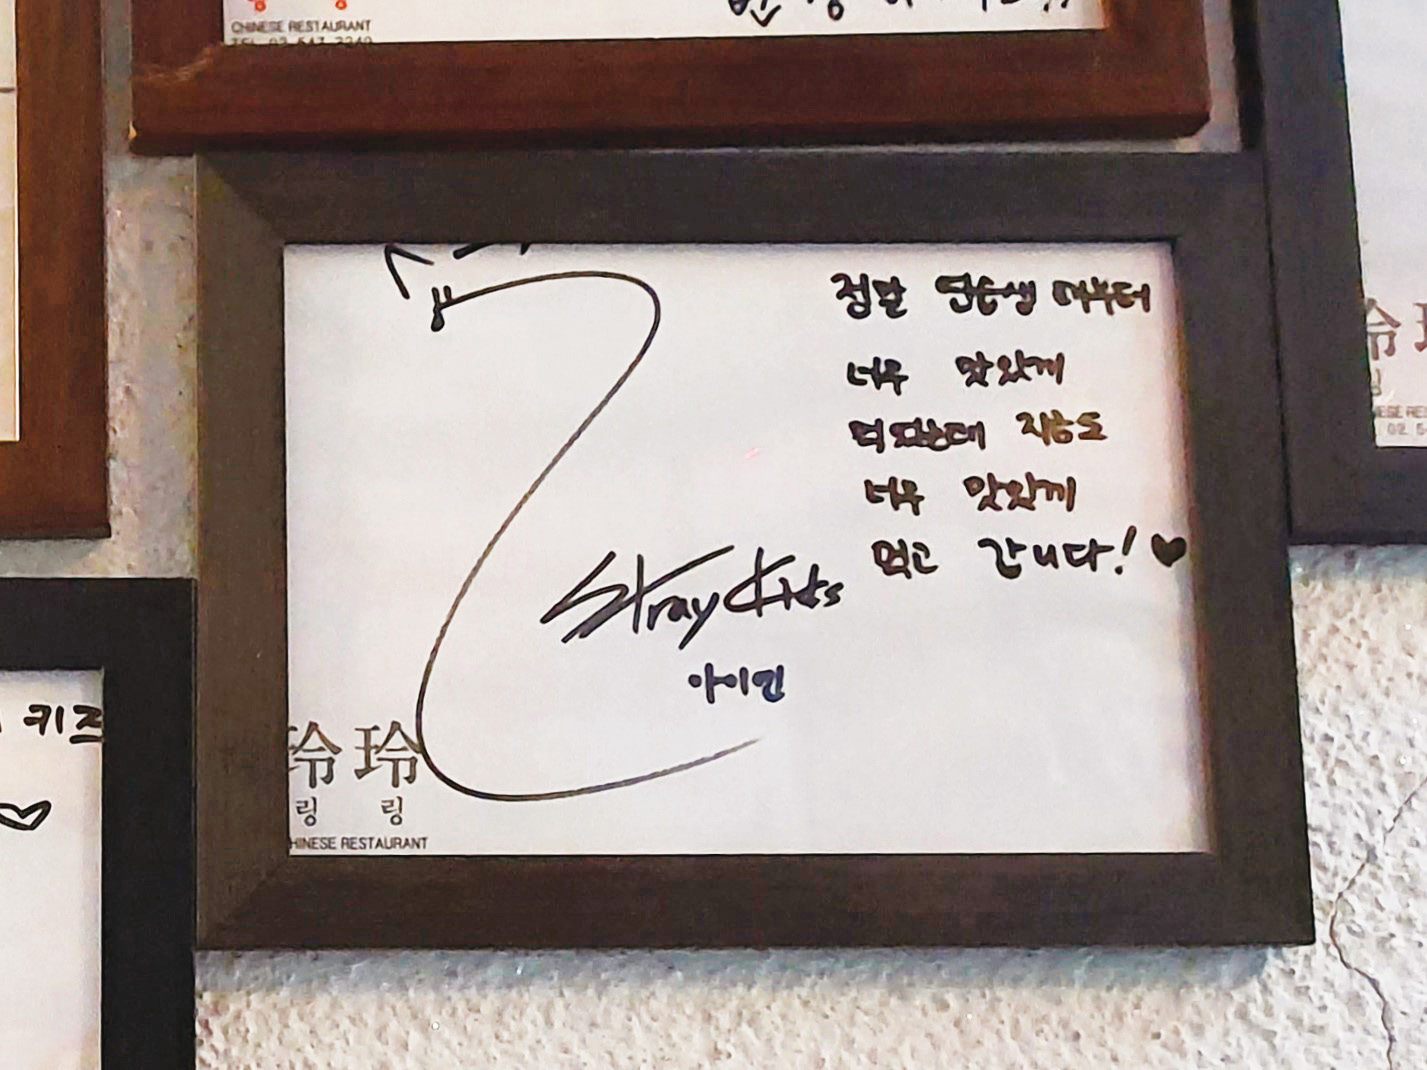 CHINESE RESTAURANT
TEL 02 547 2249
정말 연습생 때부터
너무 맛있게
먹었는데 지금도
너무 맛있게
먹고 갑니다! ♥
Stray Kids
아이엔
키즈
玲玲
링 링
HINESE RESTAURANT
玲
링
02 5